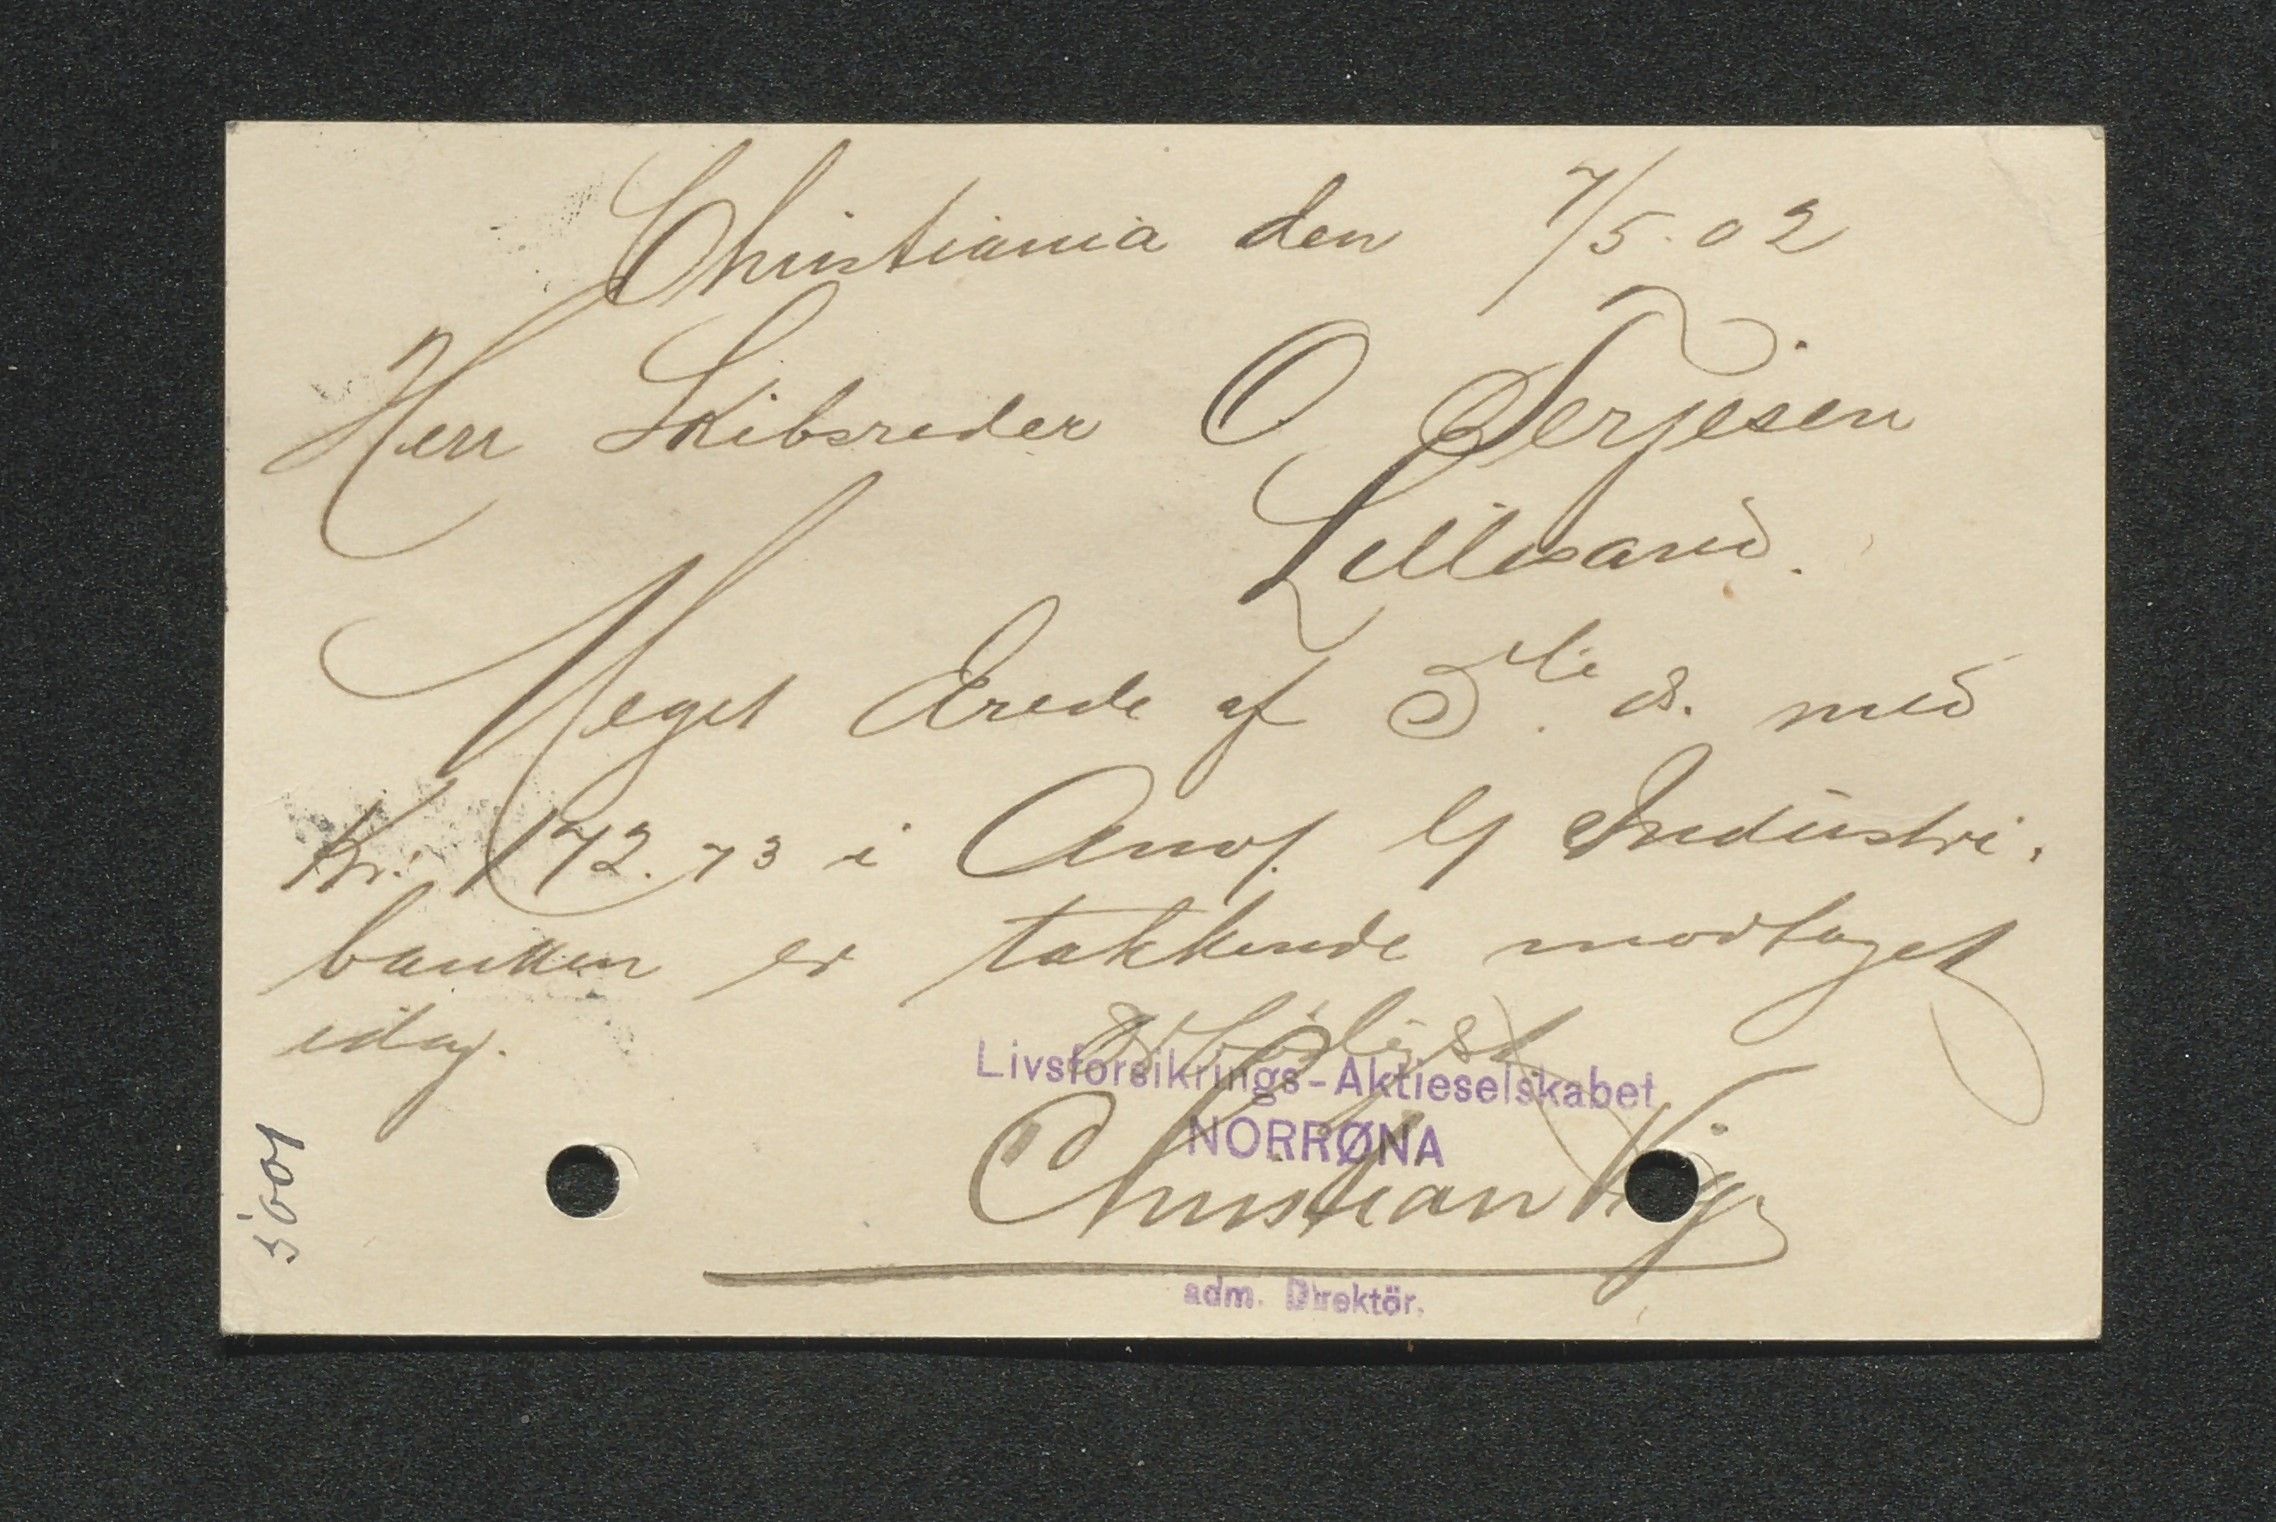 Christiania den 7/5.02
Herr Skibsreder O Terjesen
Lillesand.
Meget Ærede af 5te ds. med
Kr. 172.73 i Anv. Industri-
banken er takkende modtaget
idag.
Ærbødigst
Livsforsikrings-Aktieselskabet
NORRØNA
Christian
adm. Direktör.